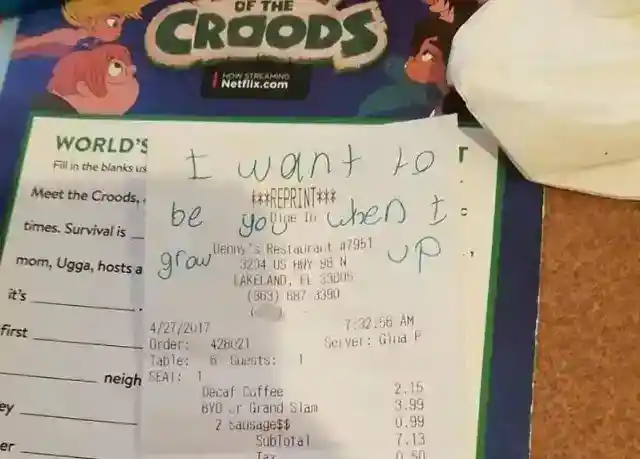 OF THE
CROODS
NOW STREAMING
Netflix.com
WORLD'S
Fill in the blanks us
Meet the Croods,
times. Survival is
mom, Ugga, hosts a
it's
first
neigh
ey
er
T
I want to
***REPRINT***
be you when I
Dine In
grow up
Denny's Restaurant #7951
3204 US HWY 98 N
LAKELAND, FL 33805
(863) 687 3390
4/27/2017 7:32:56 AM
Order: 428021 Server: Gina P
Table: 6 Guests: 1
SEAT: 1
Decaf Coffee 2.15
BYO or Grand Slam 3.99
2 Sausage$$ 0.99
SubTotal 7.13
Tax 0.50